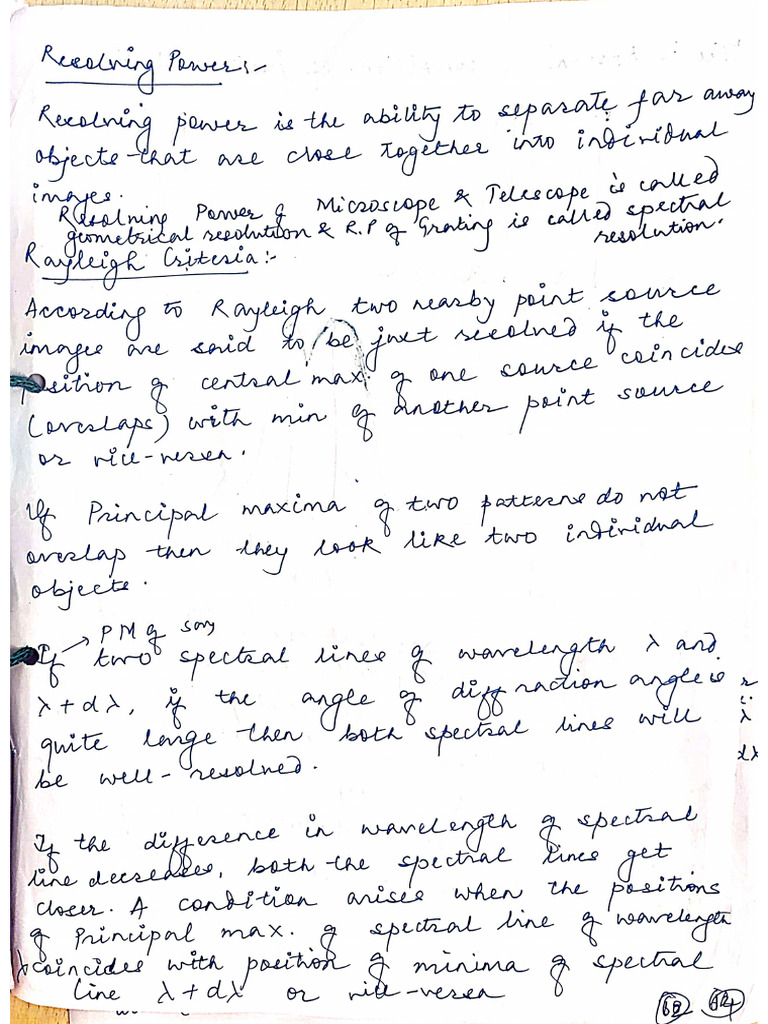 Resolving Power:-
Resolving power is the ability to separate far away
objects that are close together into individual
images.
Resolving Power of Microscope & Telescope is called
geometrical resolution & R.P of Grating is called spectral
resolution.
Rayleigh Criteria:-
According to Rayleigh two nearby point source
images are said to be just resolved if the
position of central max. of one source coincides
(overlaps) with min of another point source
or vice-versa.
If Principal maxima of two patterns do not
overlap then they look like two individual
objects.
PM of say
If two spectral lines of wavelength λ and
λ+dλ, if the angle of diffraction angle is
quite large then both spectral lines will
be well-resolved.
λ
dλ
If the difference in wavelength of spectral
line decreases, both the spectral lines get
closer. A condition arises when the positions
of Principal max. of spectral line of wavelength
λ coincides with position of minima of spectral
line λ+dλ or vice-versa